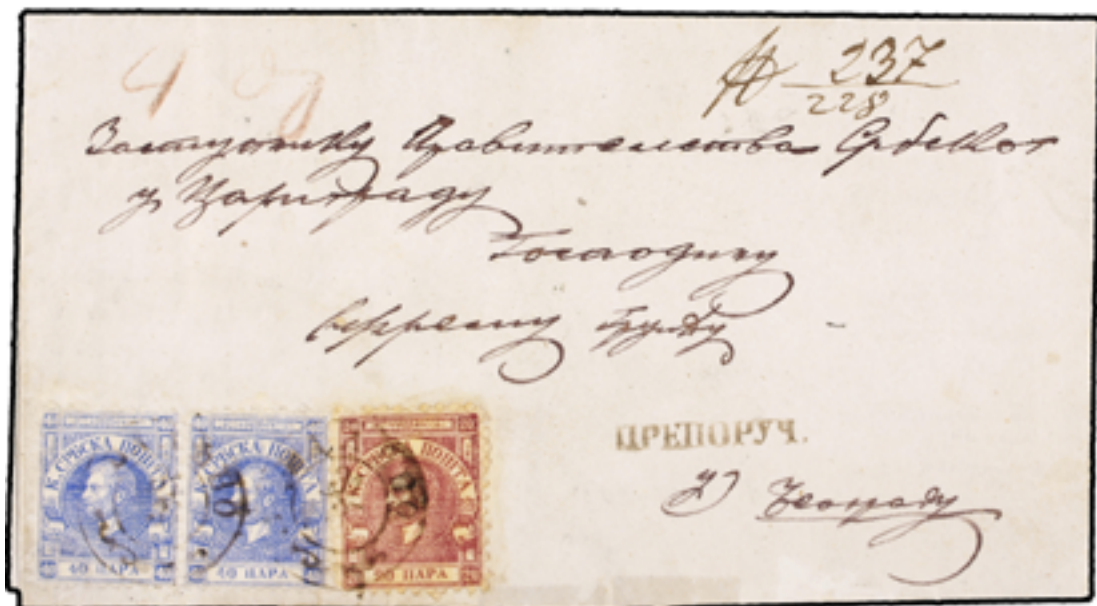 № 237
228
Заступнику Правителства Србског
у Цариграду
Господину
Јефрему Грујићу
ПРЕПОРУЧ.
у Београду
К. СРБСКА ПОШТА
40 ПАРА
К. СРБСКА ПОШТА
40 ПАРА
К. СРБСКА ПОШТА
20 ПАРА